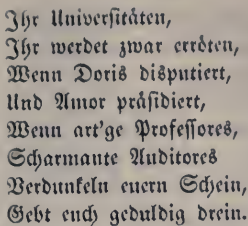 Ihr Universitäten,
Ihr werdet zwar erröten,
Wenn Doris disputiert,
Und Amor präsidiert,
Wenn art'ge Professores,
Scharmante Auditores
Verdunkeln euern Schein,
Gebt euch geduldig drein.